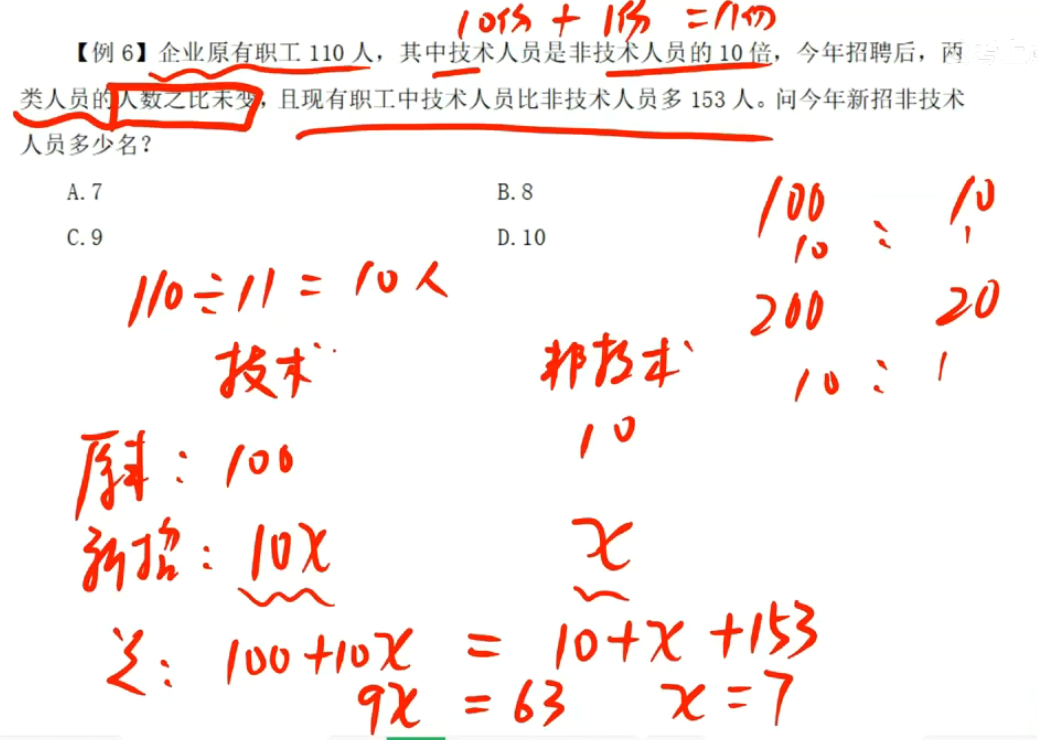 10份 + 1份 = 11份
【例 6】企业原有职工 110 人，其中技术人员是非技术人员的 10 倍，今年招聘后，两
类人员的人数之比未变，且现有职工中技术人员比非技术人员多 153 人。问今年新招非技术
人员多少名？
A.7 B.8
C.9 D.10
100 : 10
10 1
110÷11 = 10人
200 20
技术 非技术
10 : 1
原来: 100 10
新招: 10x x
100+10x = 10+x+153
9x = 63 x=7